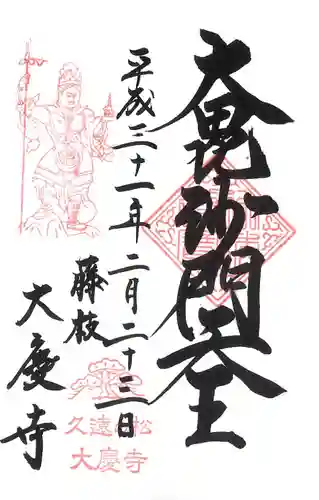 大毘沙門天王
平成三十一年二月二十三日
藤枝
大慶寺
久遠 松
大慶寺